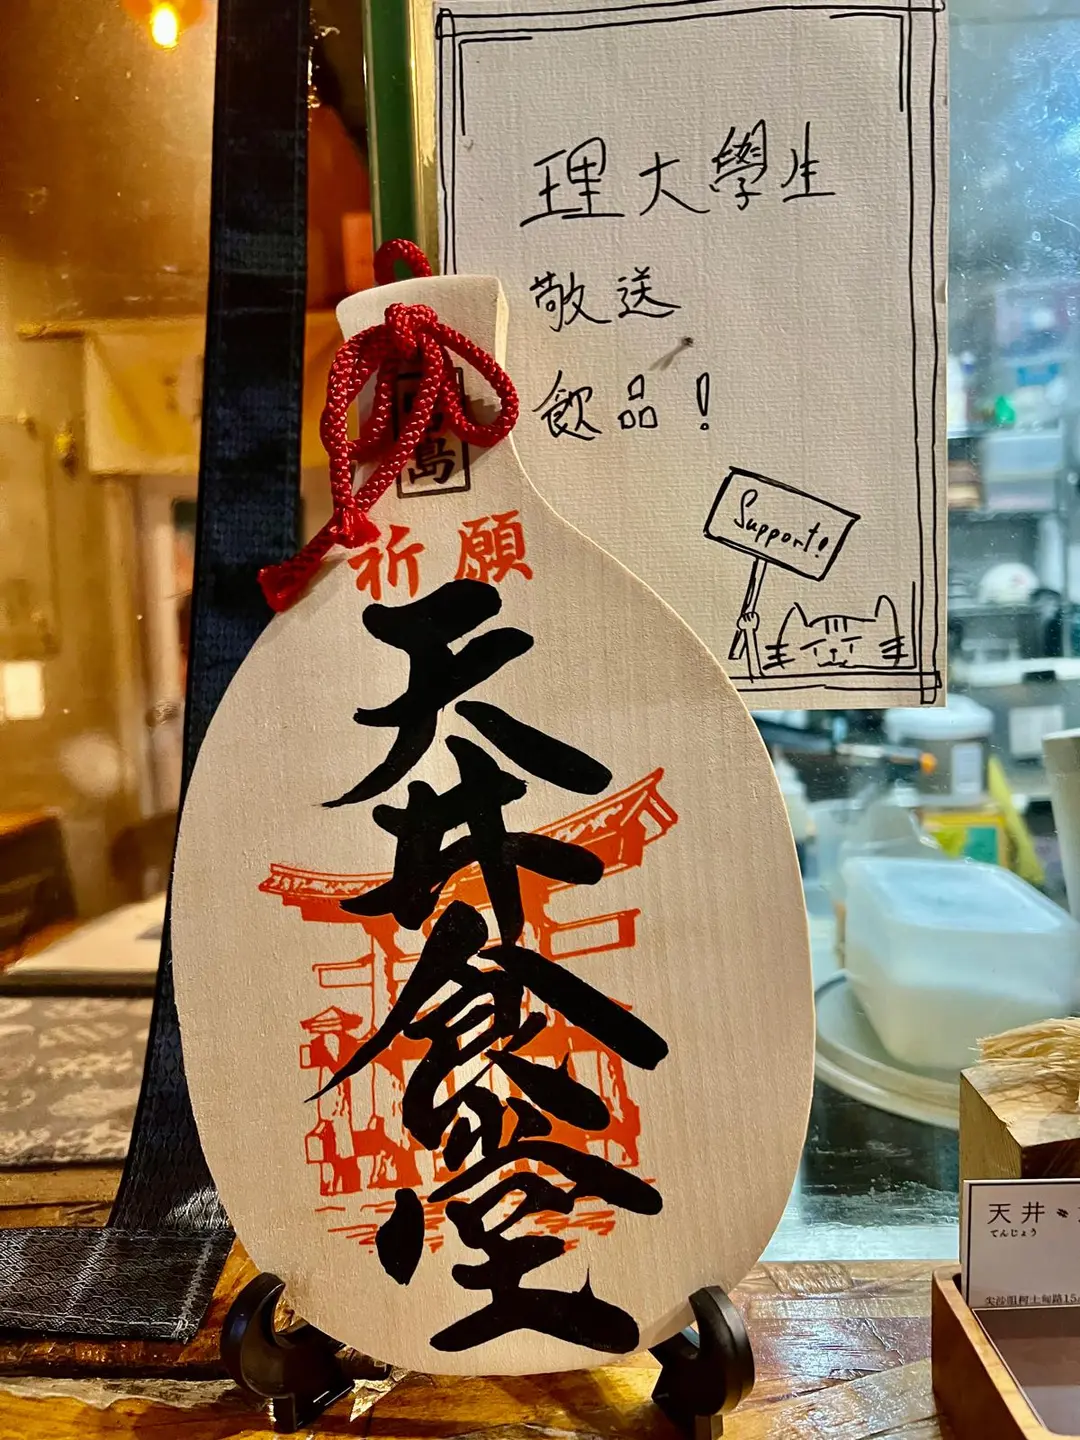 理大學生
敬送
飲品！
Support!
島
祈願
天井食堂
天井
てんじょう
尖沙咀柯士甸路15